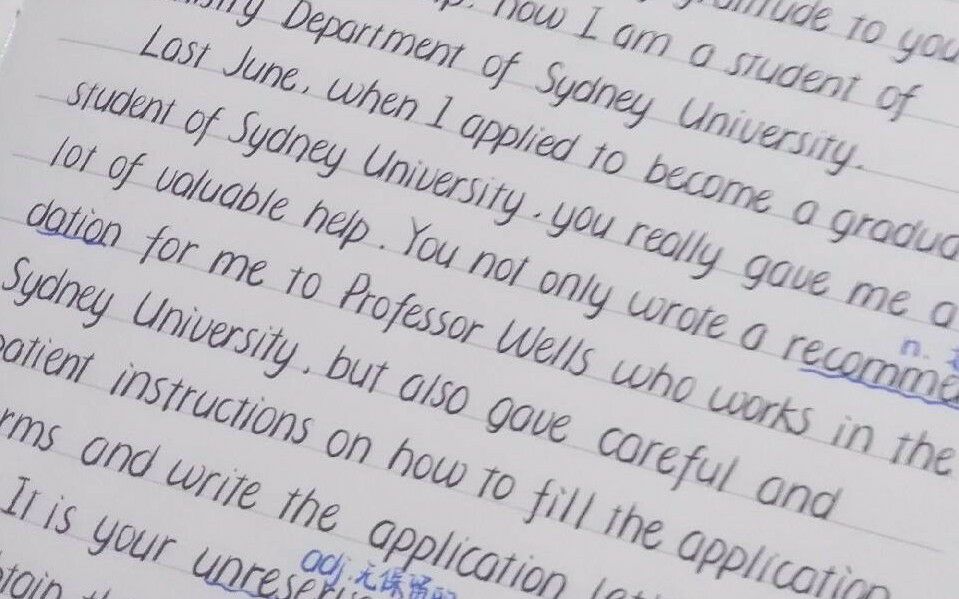 gratitude to you
now I am a student of
Department of Sydney University.
Last June, when I applied to become a gradua
student of Sydney University, you really gave me a
lot of valuable help. You not only wrote a recomme
n.
dation for me to Professor Wells who works in the
Sydney University, but also gave careful and
patient instructions on how to fill the application
rms and write the application
It is your unreser
adj. 无保留的
tain